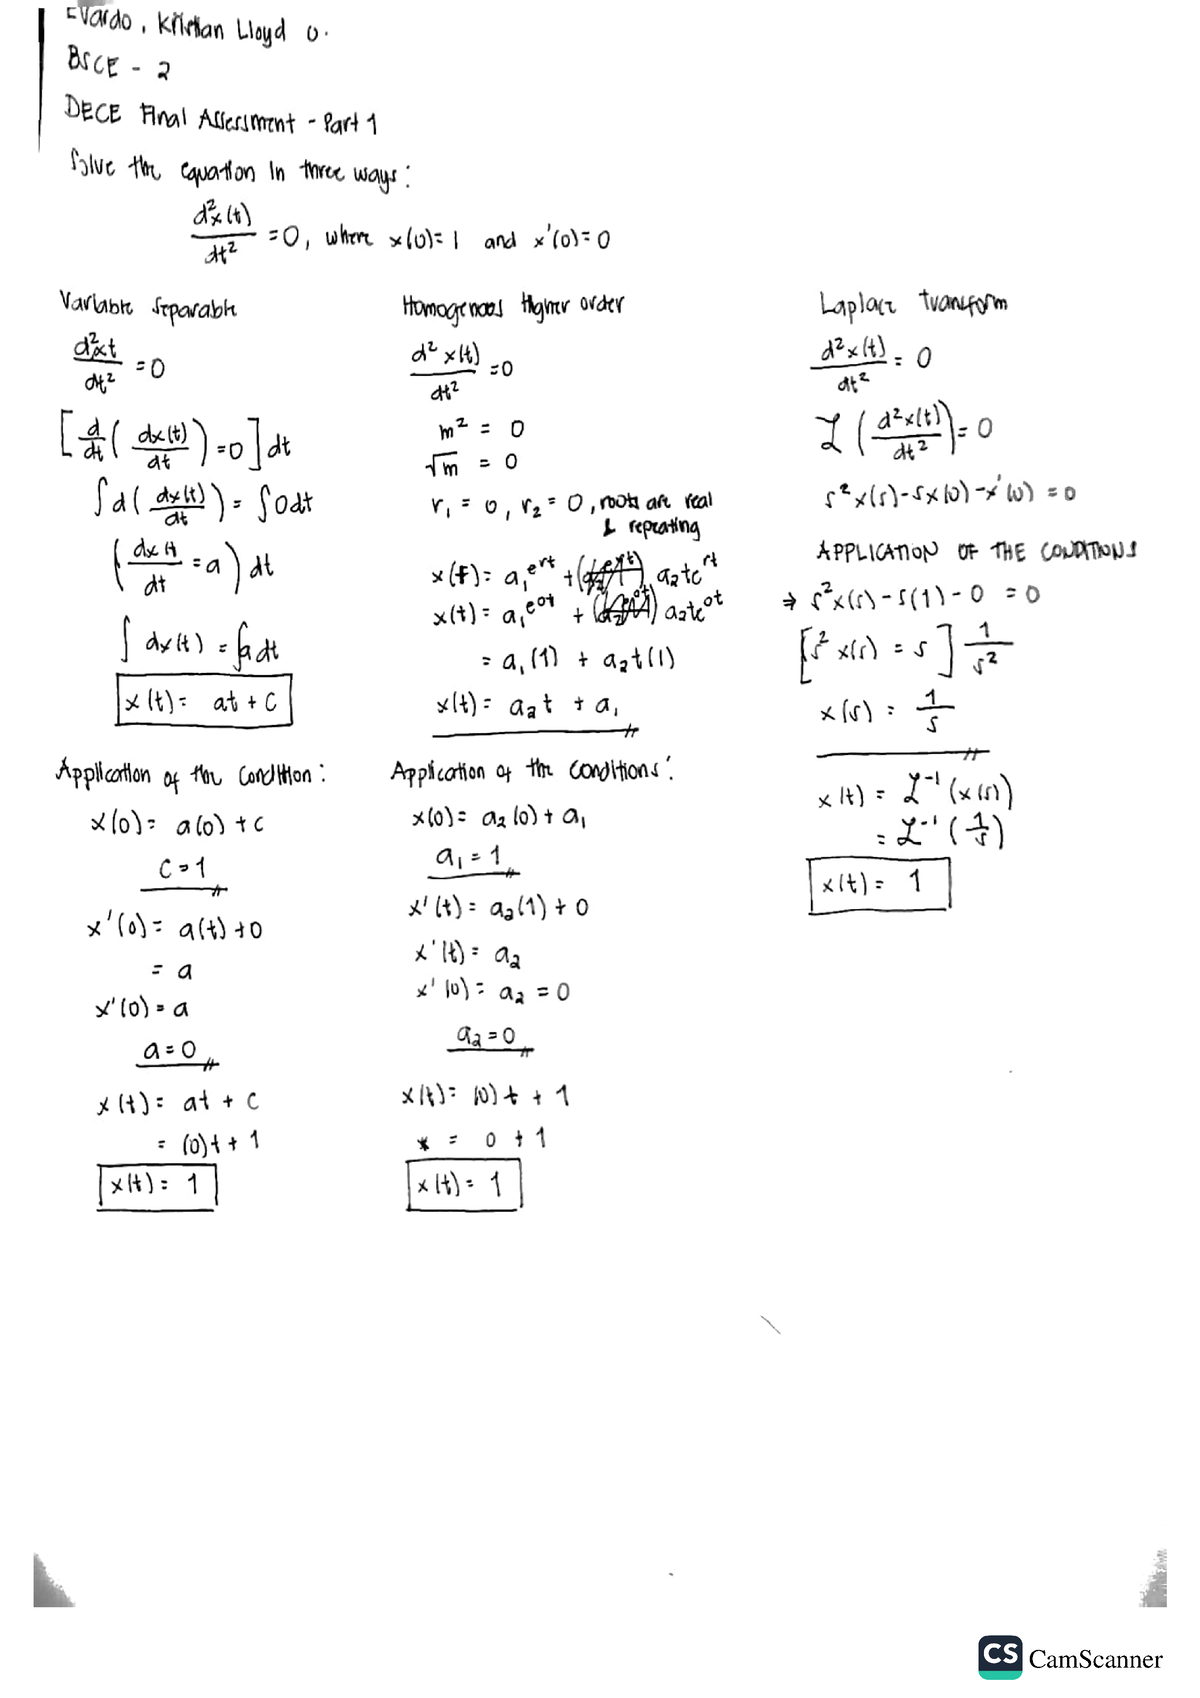 Evardo, Kristian Lloyd O.
BSCE - 2
DECE Final Assessment - Part 1
Solve the equation in three ways:
d²x(t)/dt² = 0, where x(0) = 1 and x'(0) = 0
Variable Separable
d²xt/dt² = 0
[d/dt (dx(t)/dt) = 0] dt
∫d(dx(t)/dt) = ∫0dt
(dx(t)/dt = a) dt
∫dx(t) = ∫a dt
x(t) = at + C
Application of the Condition:
x(0) = a(0) + C
C = 1
x'(0) = a(t) + 0
= a
x'(0) = a
a = 0
x(t) = at + C
= (0)t + 1
x(t) = 1
Homogenous Higher order
d²x(t)/dt² = 0
m² = 0
√m = 0
r₁ = 0, r₂ = 0, roots are real
& repeating
x(t) = a₁e^rt + a₂te^rt
x(t) = a₁e^0t + a₂te^0t
= a₁(1) + a₂t(1)
x(t) = a₂t + a₁
Application of the Conditions:
x(0) = a₂(0) + a₁
a₁ = 1
x'(t) = a₂(1) + 0
x'(t) = a₂
x'(0) = a₂ = 0
a₂ = 0
x(t) = (0)t + 1
= 0 + 1
x(t) = 1
Laplace transform
d²x(t)/dt² = 0
ℒ(d²x(t)/dt²) = 0
s²x(s) - sx(0) - x'(0) = 0
APPLICATION OF THE CONDITIONS
→ s²x(s) - s(1) - 0 = 0
[s²x(s) = s] 1/s²
x(s) = 1/s
x(t) = ℒ⁻¹(x(s))
= ℒ⁻¹(1/s)
x(t) = 1
CS CamScanner